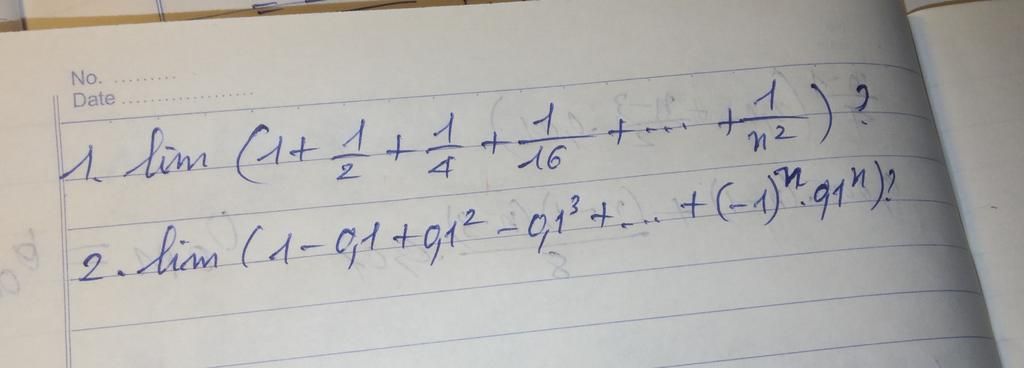 No. .........
Date ...................
1. lim (1 + 1/2 + 1/4 + 1/16 + ... + 1/n²)?
2. lim (1 - 0,1 + 0,1² - 0,1³ + ... + (-1)ⁿ. 0,1ⁿ)?